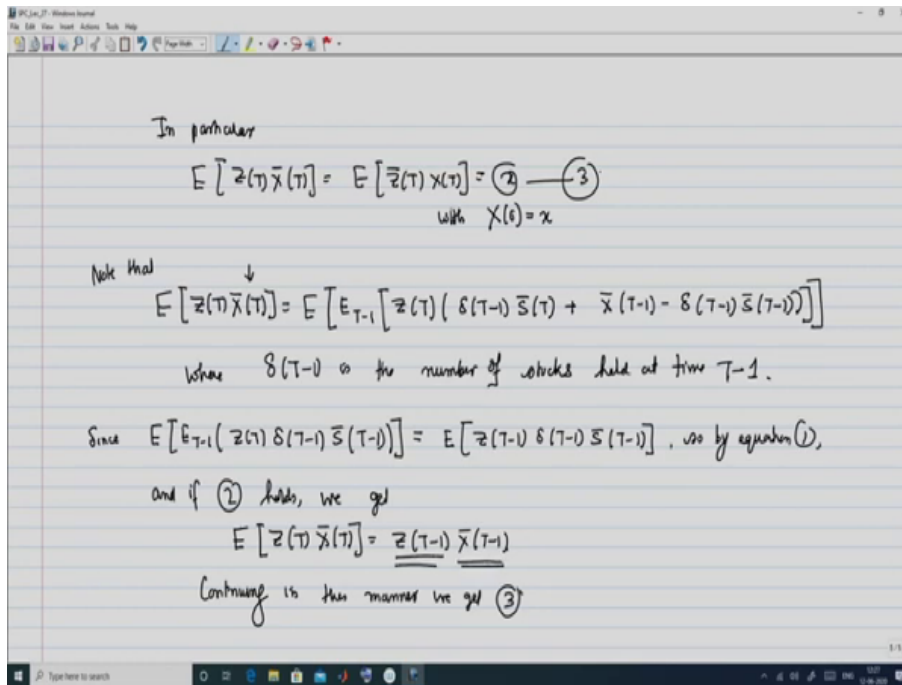 IPC_Lec_27 - Windows Journal
File Edit View Insert Actions Tools Help
Page Width
In particular
E[Z(T) X̄(T)] = E[Z̄(T) X(T)] = ② — ③
with X(0) = x
Note that ↓
E[Z(T) X̄(T)] = E[E_{T-1}[Z(T)(δ(T-1) S̄(T) + X̄(T-1) - δ(T-1) S̄(T-1))]]
where δ(T-1) is the number of stocks held at time T-1.
Since E[E_{T-1}(Z(T) δ(T-1) S̄(T-1))] = E[Z(T-1) δ(T-1) S̄(T-1)], so by equation ①,
and if ② holds, we get
E[Z(T) X̄(T)] = Z(T-1) X̄(T-1)
Continuing in this manner we get ③
1/1
Type here to search
ENG
12:27
12-06-2020